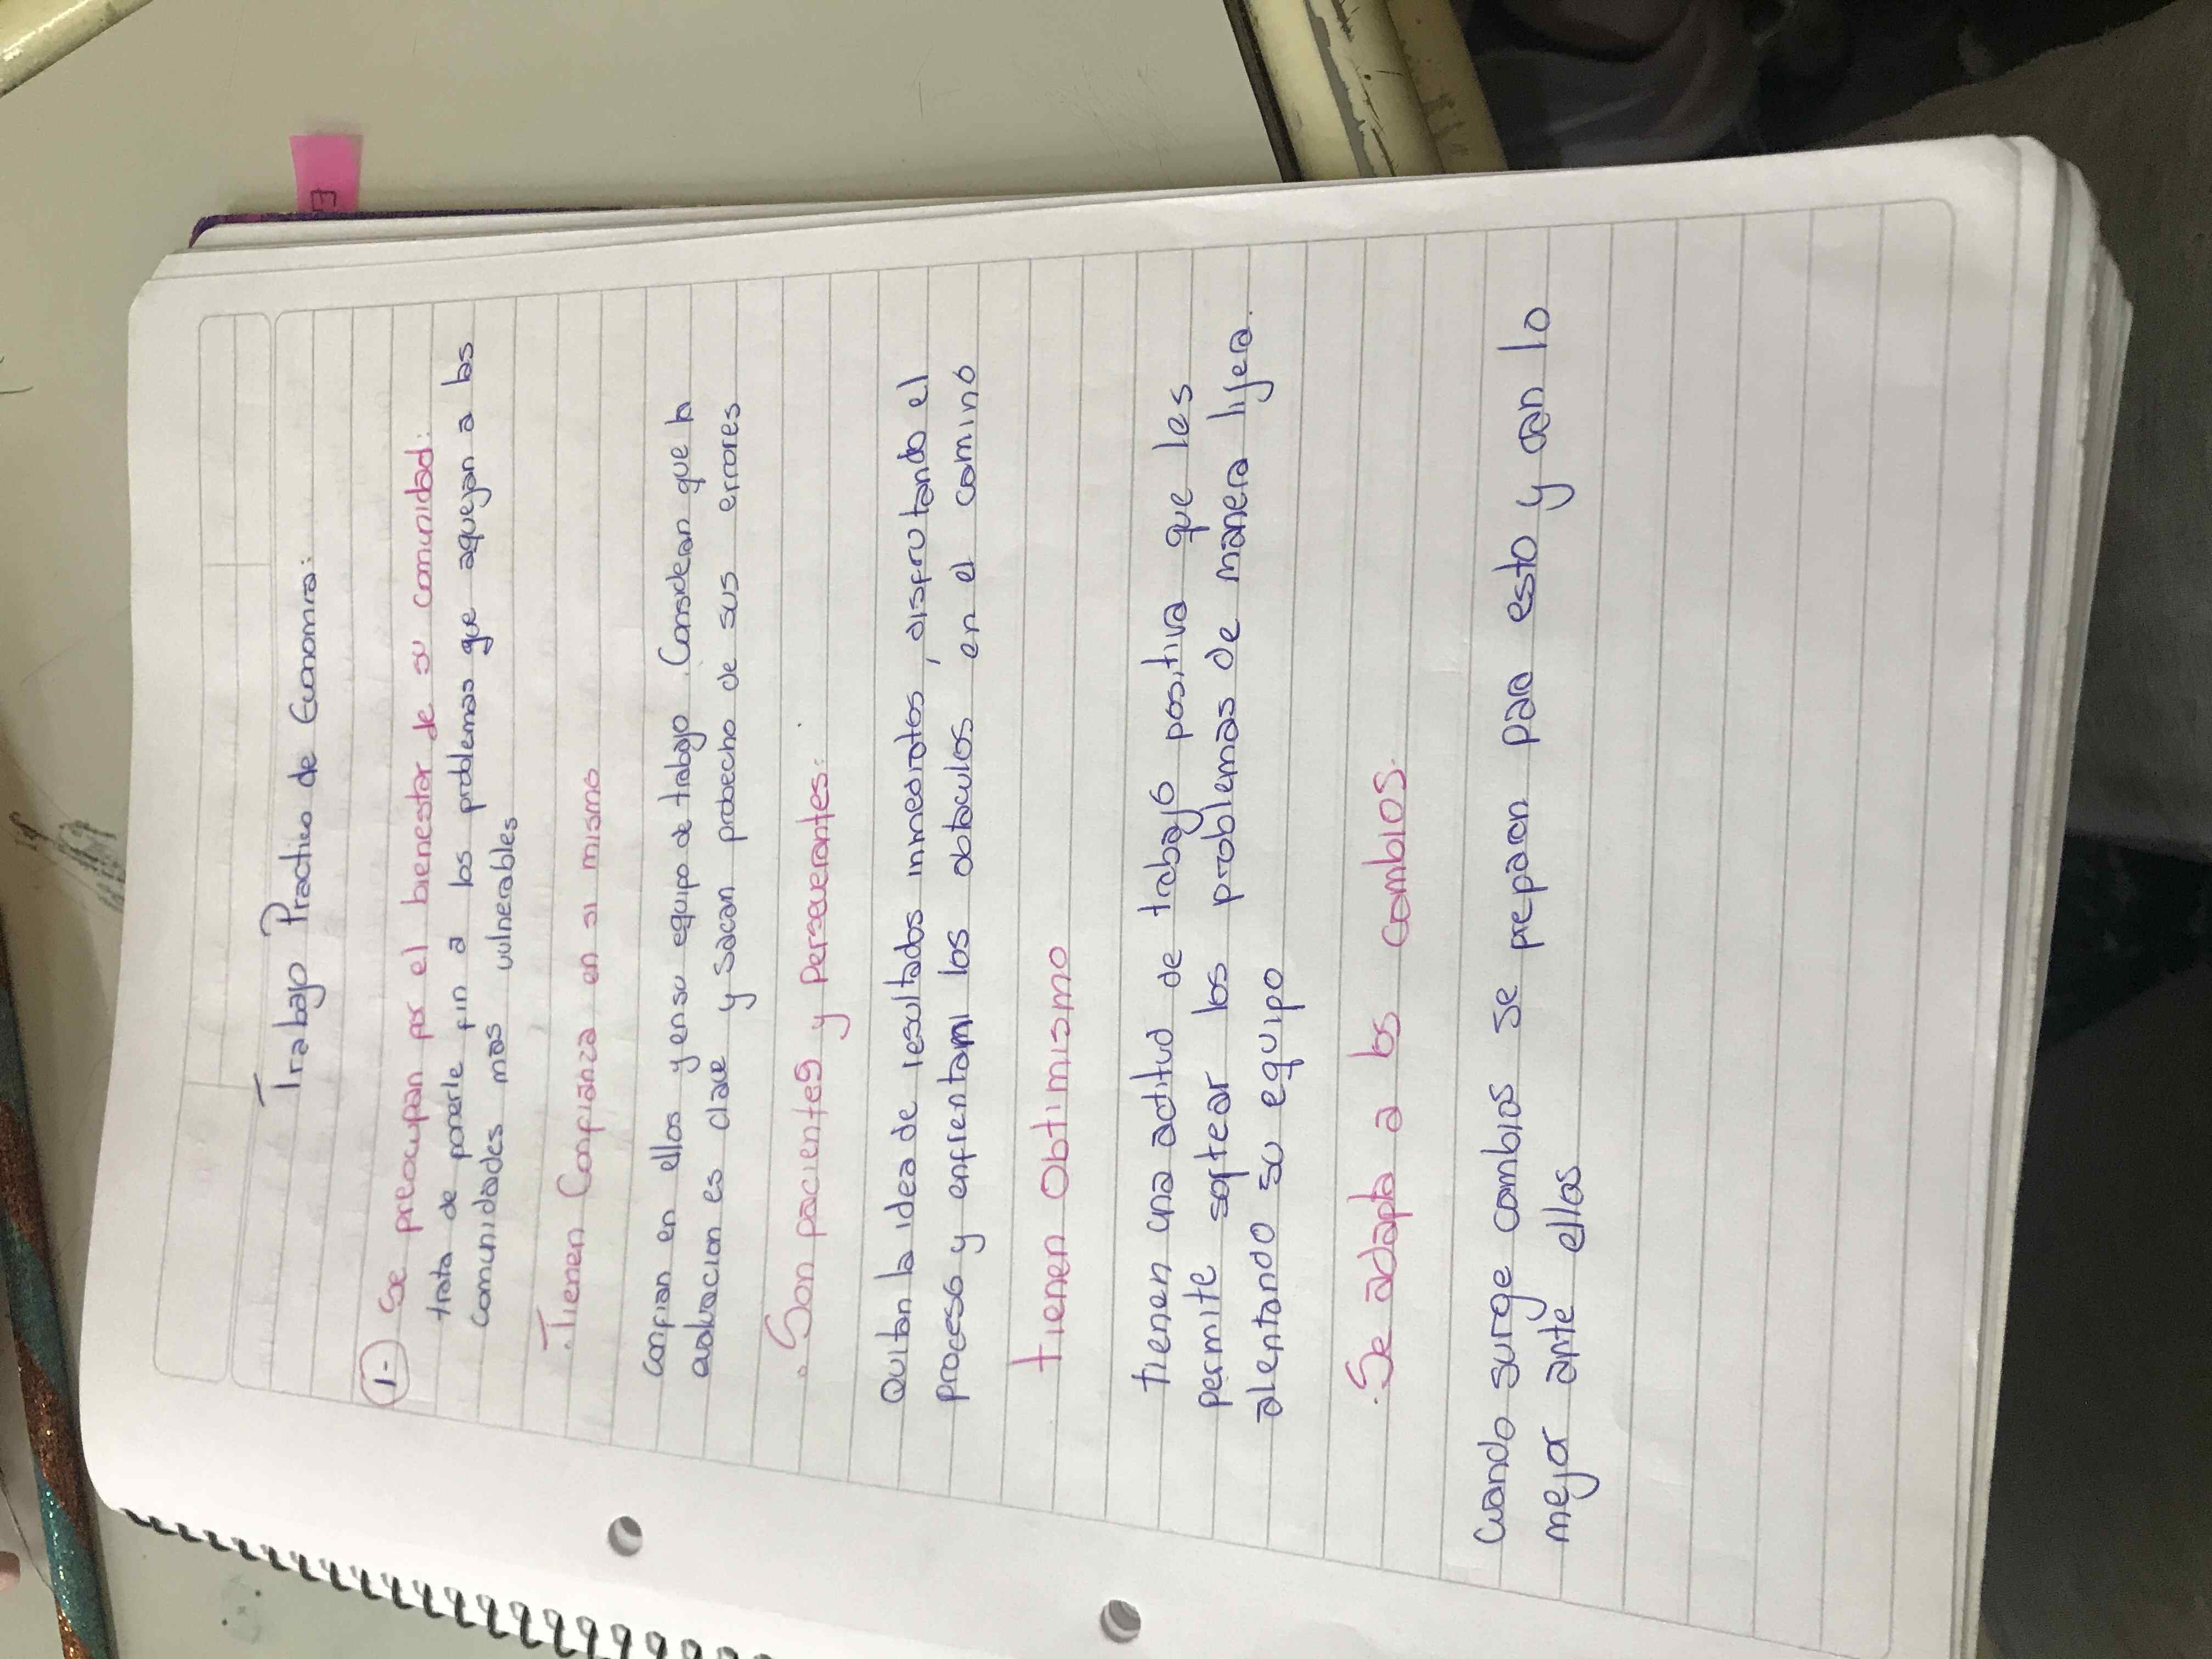 Trabajo Practico de Economia:
1- Se preocupan por el bienestar de su comunidad:
trata de ponerle fin a los problemas que aquejan a los
comunidades mas vulnerables
. Tienen Confianza en si mismo
confian en ellos y en su equipo de trabajo. Considean que la
avalvacion es clave y sacan probecho de sus errores
. Son pacientes y Perseverantes:
Quitan la idea de resultados inmediatos, disfrutando el
proceso y enfrentaml los obtaculos en el camino
tienen Obtimismo
tienen una actitud de trabajo positiva que les
permite sortear los problemas de manera lijera.
alentando su equipo
. Se adapta a los cambios.
Cuando surge cambios se preparan para esto y dan lo
mejor ante ellos
E